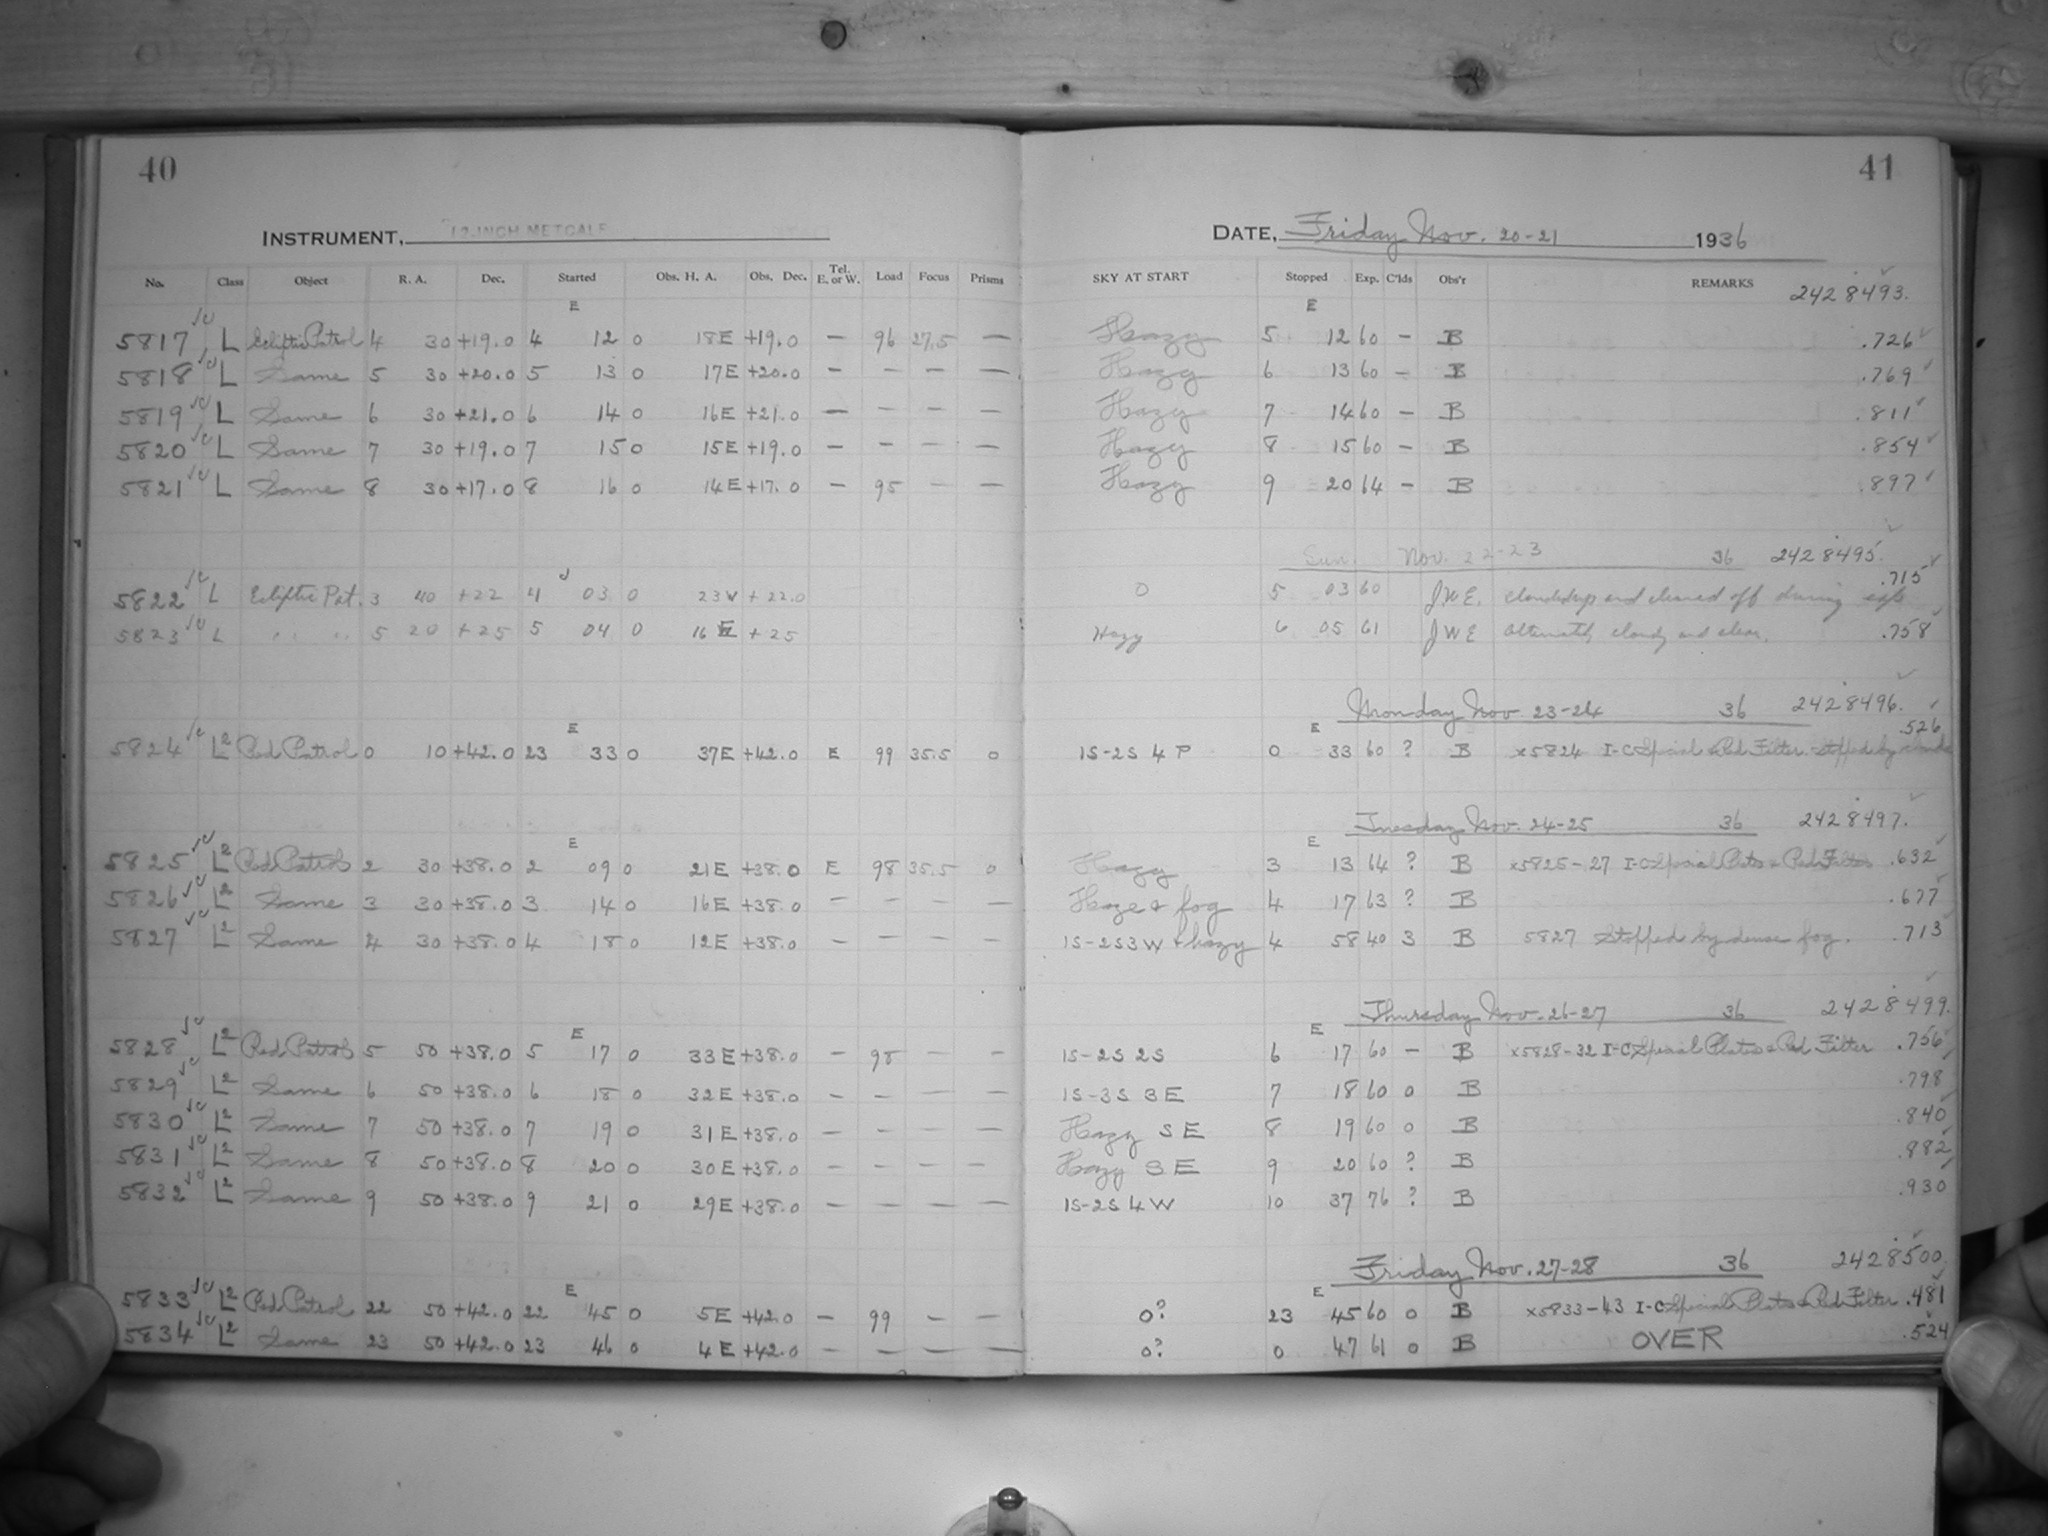 40
INSTRUMENT, 12-INCH METCALF
No. Class Object R. A. Dec. Started Obs. H. A. Obs. Dec. Tel. E. or W. Load Focus Prisms
E
5817 L Ecliptic Patrol 4 30 +19.0 4 12 0 18E +19.0 — 96 27.5 —
5818 L Same 5 30 +20.0 5 13 0 17E +20.0 — — — —
5819 L Same 6 30 +21.0 6 14 0 16E +21.0 — — — —
5820 L Same 7 30 +19.0 7 15 0 15E +19.0 — — — —
5821 L Same 8 30 +17.0 8 16 0 14E +17.0 — 95 — —
5822 L Ecliptic Pat. 3 40 +22 4 03 0 23W +22.0
5823 L " " " 5 20 +25 5 04 0 16 E +25
E
5824 L2 Red Patrol 0 10 +42.0 23 33 0 37E +42.0 E 99 35.5 0
E
5825 L2 Red Patrol 2 30 +38.0 2 09 0 21E +38.0 E 98 35.5 0
5826 L2 Same 3 30 +38.0 3 14 0 16E +38.0 — — — —
5827 L2 Same 4 30 +38.0 4 18 0 12E +38.0 — — — —
E
5828 L2 Red Patrol 5 50 +38.0 5 17 0 33E +38.0 — 98 — —
5829 L2 Same 6 50 +38.0 6 18 0 32E +38.0 — — — —
5830 L2 Same 7 50 +38.0 7 19 0 31E +38.0 — — — —
5831 L2 Same 8 50 +38.0 8 20 0 30E +38.0 — — — —
5832 L2 Same 9 50 +38.0 9 21 0 29E +38.0 — — — —
E
5833 L2 Red Patrol 22 50 +42.0 22 45 0 5E +42.0 — 99 — —
5834 L2 Same 23 50 +42.0 23 46 0 4E +42.0 — — — —
41
DATE, Friday Nov. 20-21 1936
SKY AT START Stopped Exp. C'lds Obs'r REMARKS
E 2428493.
Hazy 5 12 60 — B .726
Hazy 6 13 60 — B .769
Hazy 7 14 60 — B .811
Hazy 8 15 60 — B .854
Hazy 9 20 64 — B .897
Sun. Nov. 22-23 36 2428495.
0 5 03 60 J.W.E. clouded up and cleared off during exp .715
Hazy 6 05 61 JWE alternately cloudy and clear. .758
Monday Nov. 23-24 36 2428496.
E .526
1S-2S 4 P 0 33 60 ? B x5824 I-C Special & Red Filter. stopped by clouds
Tuesday Nov. 24-25 36 2428497.
E
Hazy 3 13 64 ? B x5825-27 I-C Special Plates & Red Filter .632
Haze & fog 4 17 63 ? B .677
1S-2S 3 W & hazy 4 58 40 3 B 5827 Stopped by dense fog. .713
Thursday Nov. 26-27 36 2428499.
E
1S-2S 2S 6 17 60 — B x5828-32 I-C Special Plates & Red Filter .756
1S-3S 3 E 7 18 60 0 B .798
Hazy S E 8 19 60 0 B .840
Hazy S E 9 20 60 ? B .882
1S-2S 4 W 10 37 76 ? B .930
Friday Nov. 27-28 36 2428500.
E
0? 23 45 60 0 B x5833-43 I-C Special Plates & Red Filter .481
0? 0 47 61 0 B OVER .524